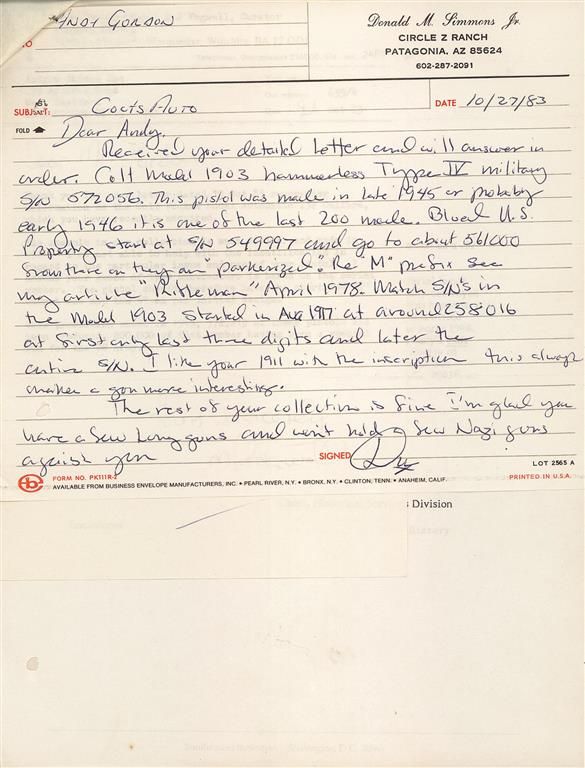 ANDY GORDON
TO
Donald M. Simmons Jr.
CIRCLE Z RANCH
PATAGONIA, AZ 85624
602-287-2091
SUBJECT: Colts Auto
DATE 10/27/83
FOLD
Dear Andy,
Received your detailed letter and will answer in
order. Colt Model 1903 hammerless Type IV military
S/N 572056. This pistol was made in late 1945 or probably
early 1946 it is one of the last 200 made. Blued U.S.
Property start at S/N 549997 and go to about 561000
from there on they are "parkerized". Re "M" prefix see
my article "Rifleman" April 1978. Match S/N's in
the Model 1903 started in Aug 1917 at around 258016
at first only last three digits and later the
entire S/N. I like your 1911 with the inscription this always
makes a gun more interesting.
The rest of your collection is fine I'm glad you
have a few long guns and won't hold a few Nazi guns
against you
SIGNED
LOT 2565 A
FORM NO. PK111R-2
PRINTED IN U.S.A.
AVAILABLE FROM BUSINESS ENVELOPE MANUFACTURERS, INC. • PEARL RIVER, N.Y. • BRONX, N.Y. • CLINTON, TENN. • ANAHEIM, CALIF.
Division